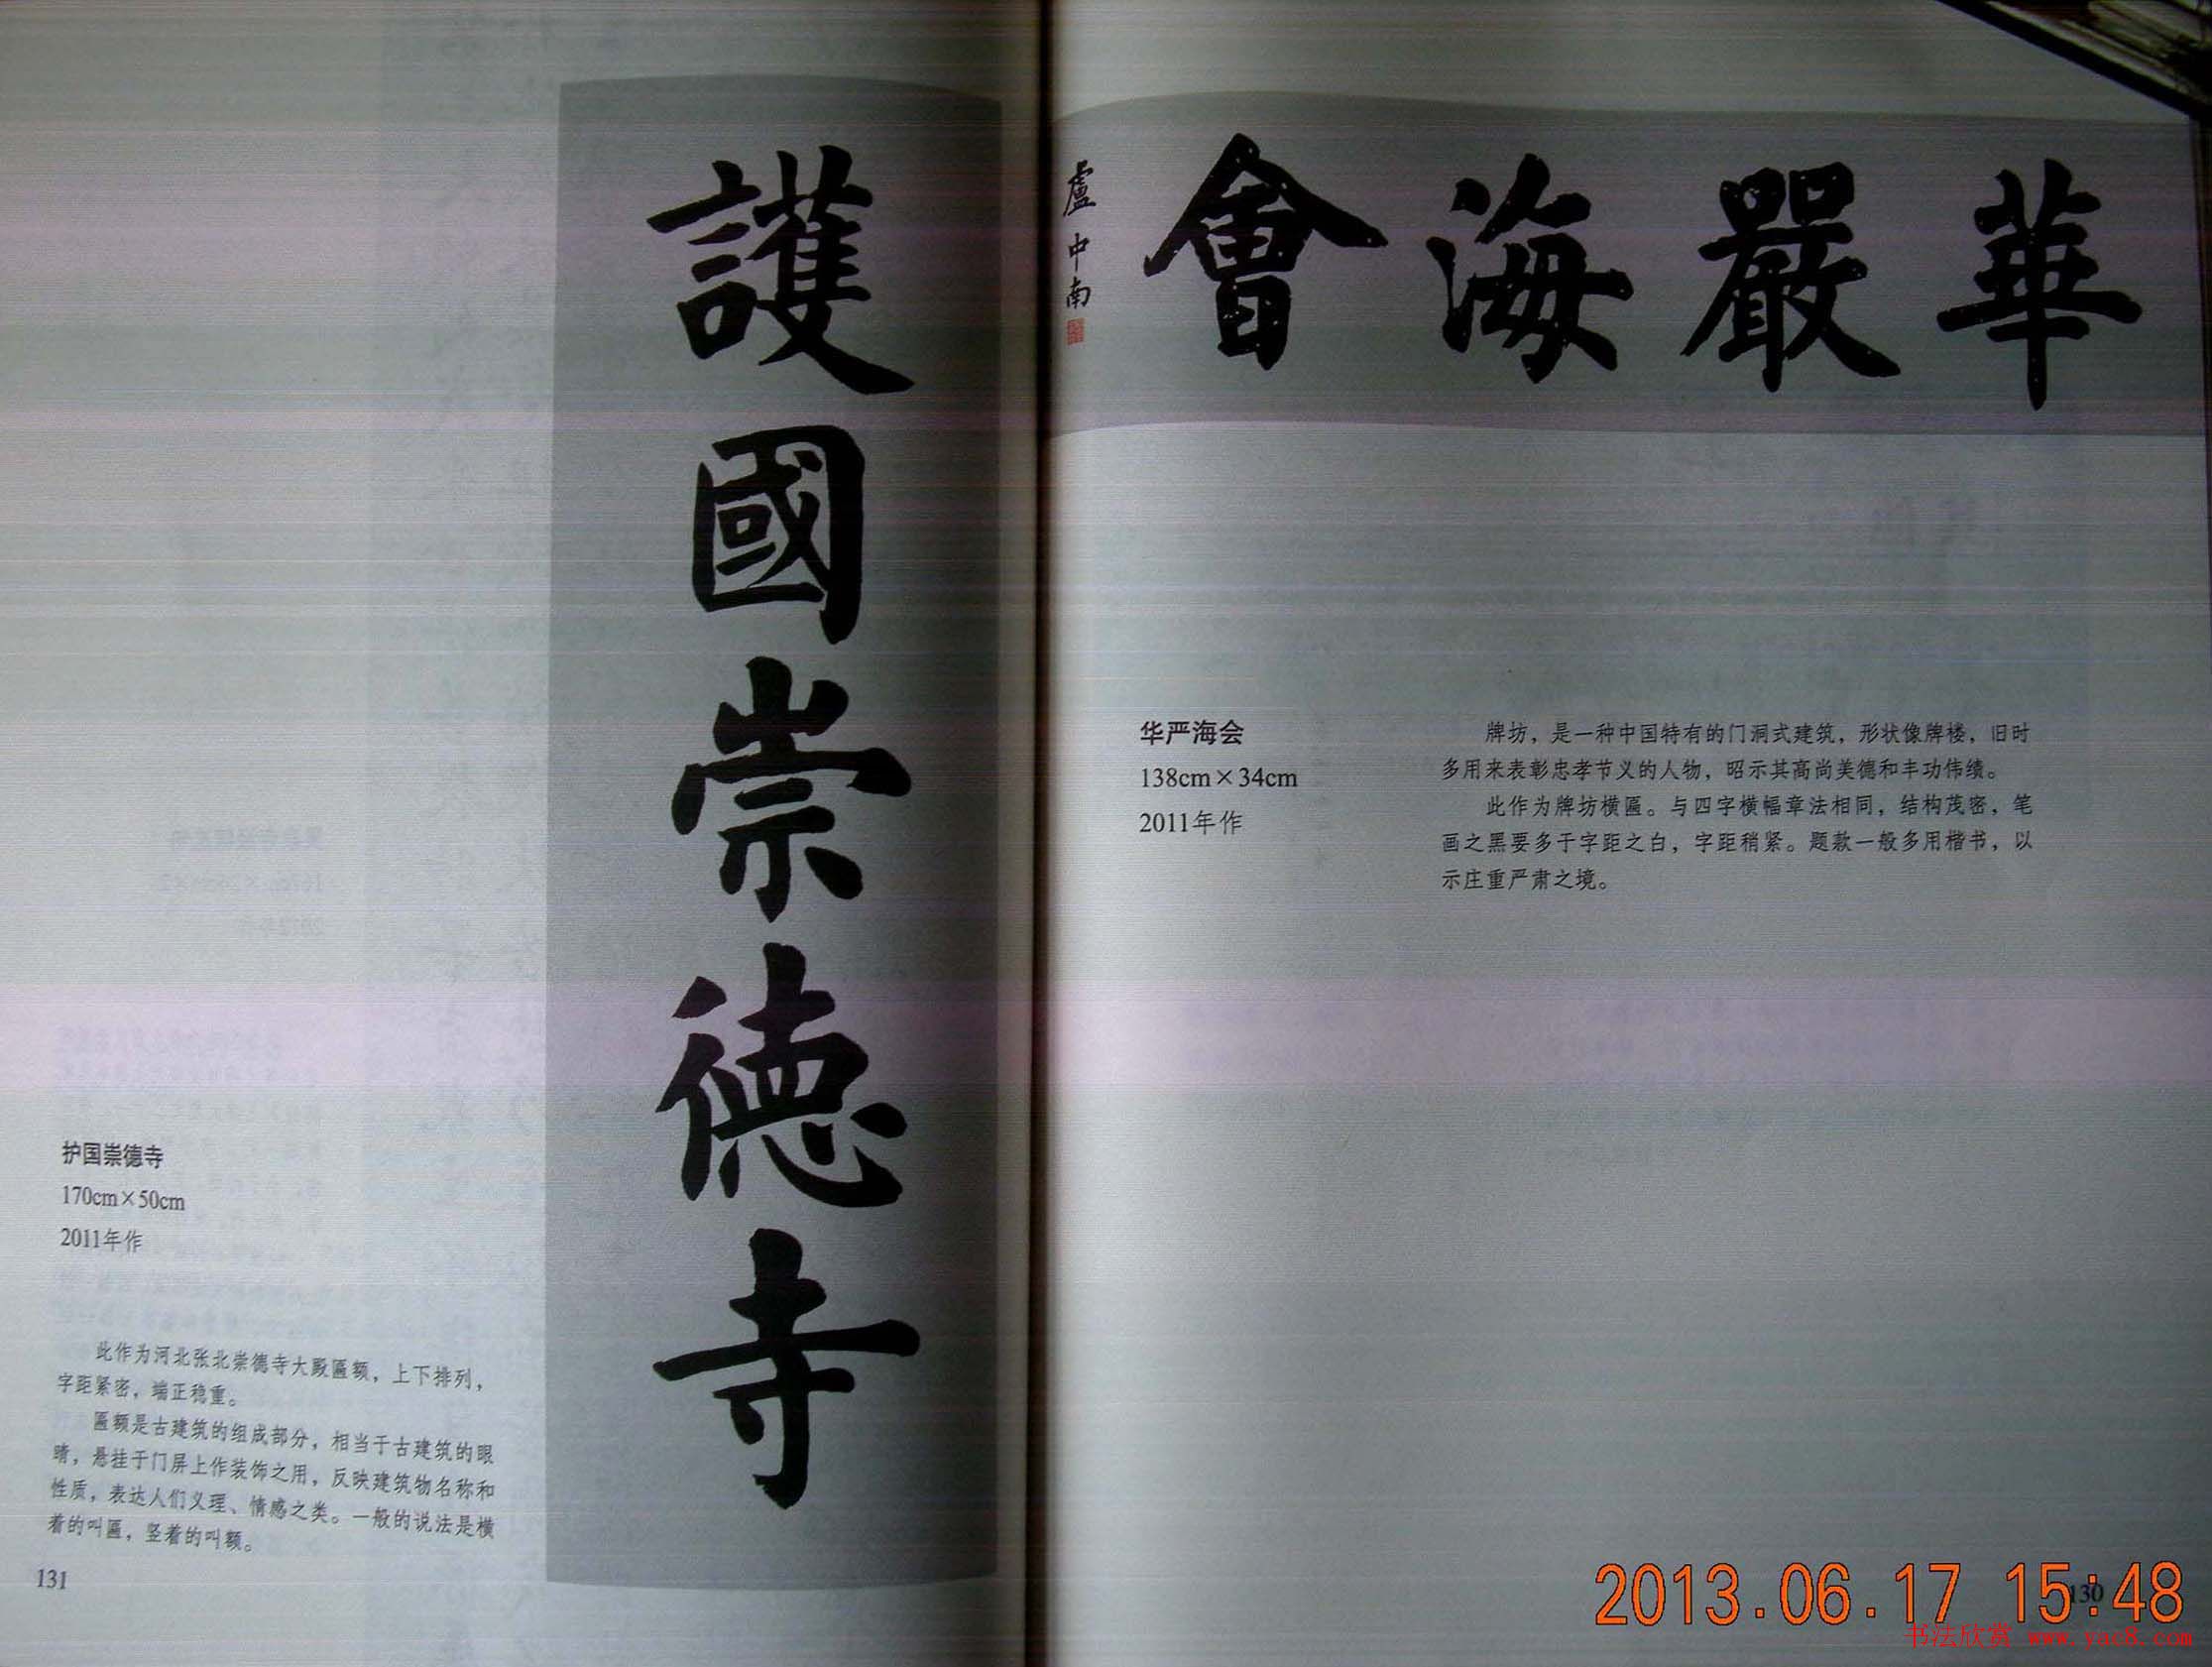 華嚴海會
盧中南
华严海会
138cm×34cm
2011年作
牌坊，是一种中国特有的门洞式建筑，形状像牌楼，旧时
多用来表彰忠孝节义的人物，昭示其高尚美德和丰功伟绩。
此作为牌坊横匾。与四字横幅章法相同，结构茂密，笔
画之黑要多于字距之白，字距稍紧。题款一般多用楷书，以
示庄重严肃之境。
130
護國崇德寺
护国崇德寺
170cm×50cm
2011年作
此作为河北张北崇德寺大殿匾额，上下排列，
字距紧密，端正稳重。
匾额是古建筑的组成部分，相当于古建筑的眼
睛，悬挂于门屏上作装饰之用，反映建筑物名称和
性质，表达人们义理、情感之类。一般的说法是横
着的叫匾，竖着的叫额。
131
2013.06.17 15:48
书法欣赏 www.yac8.com